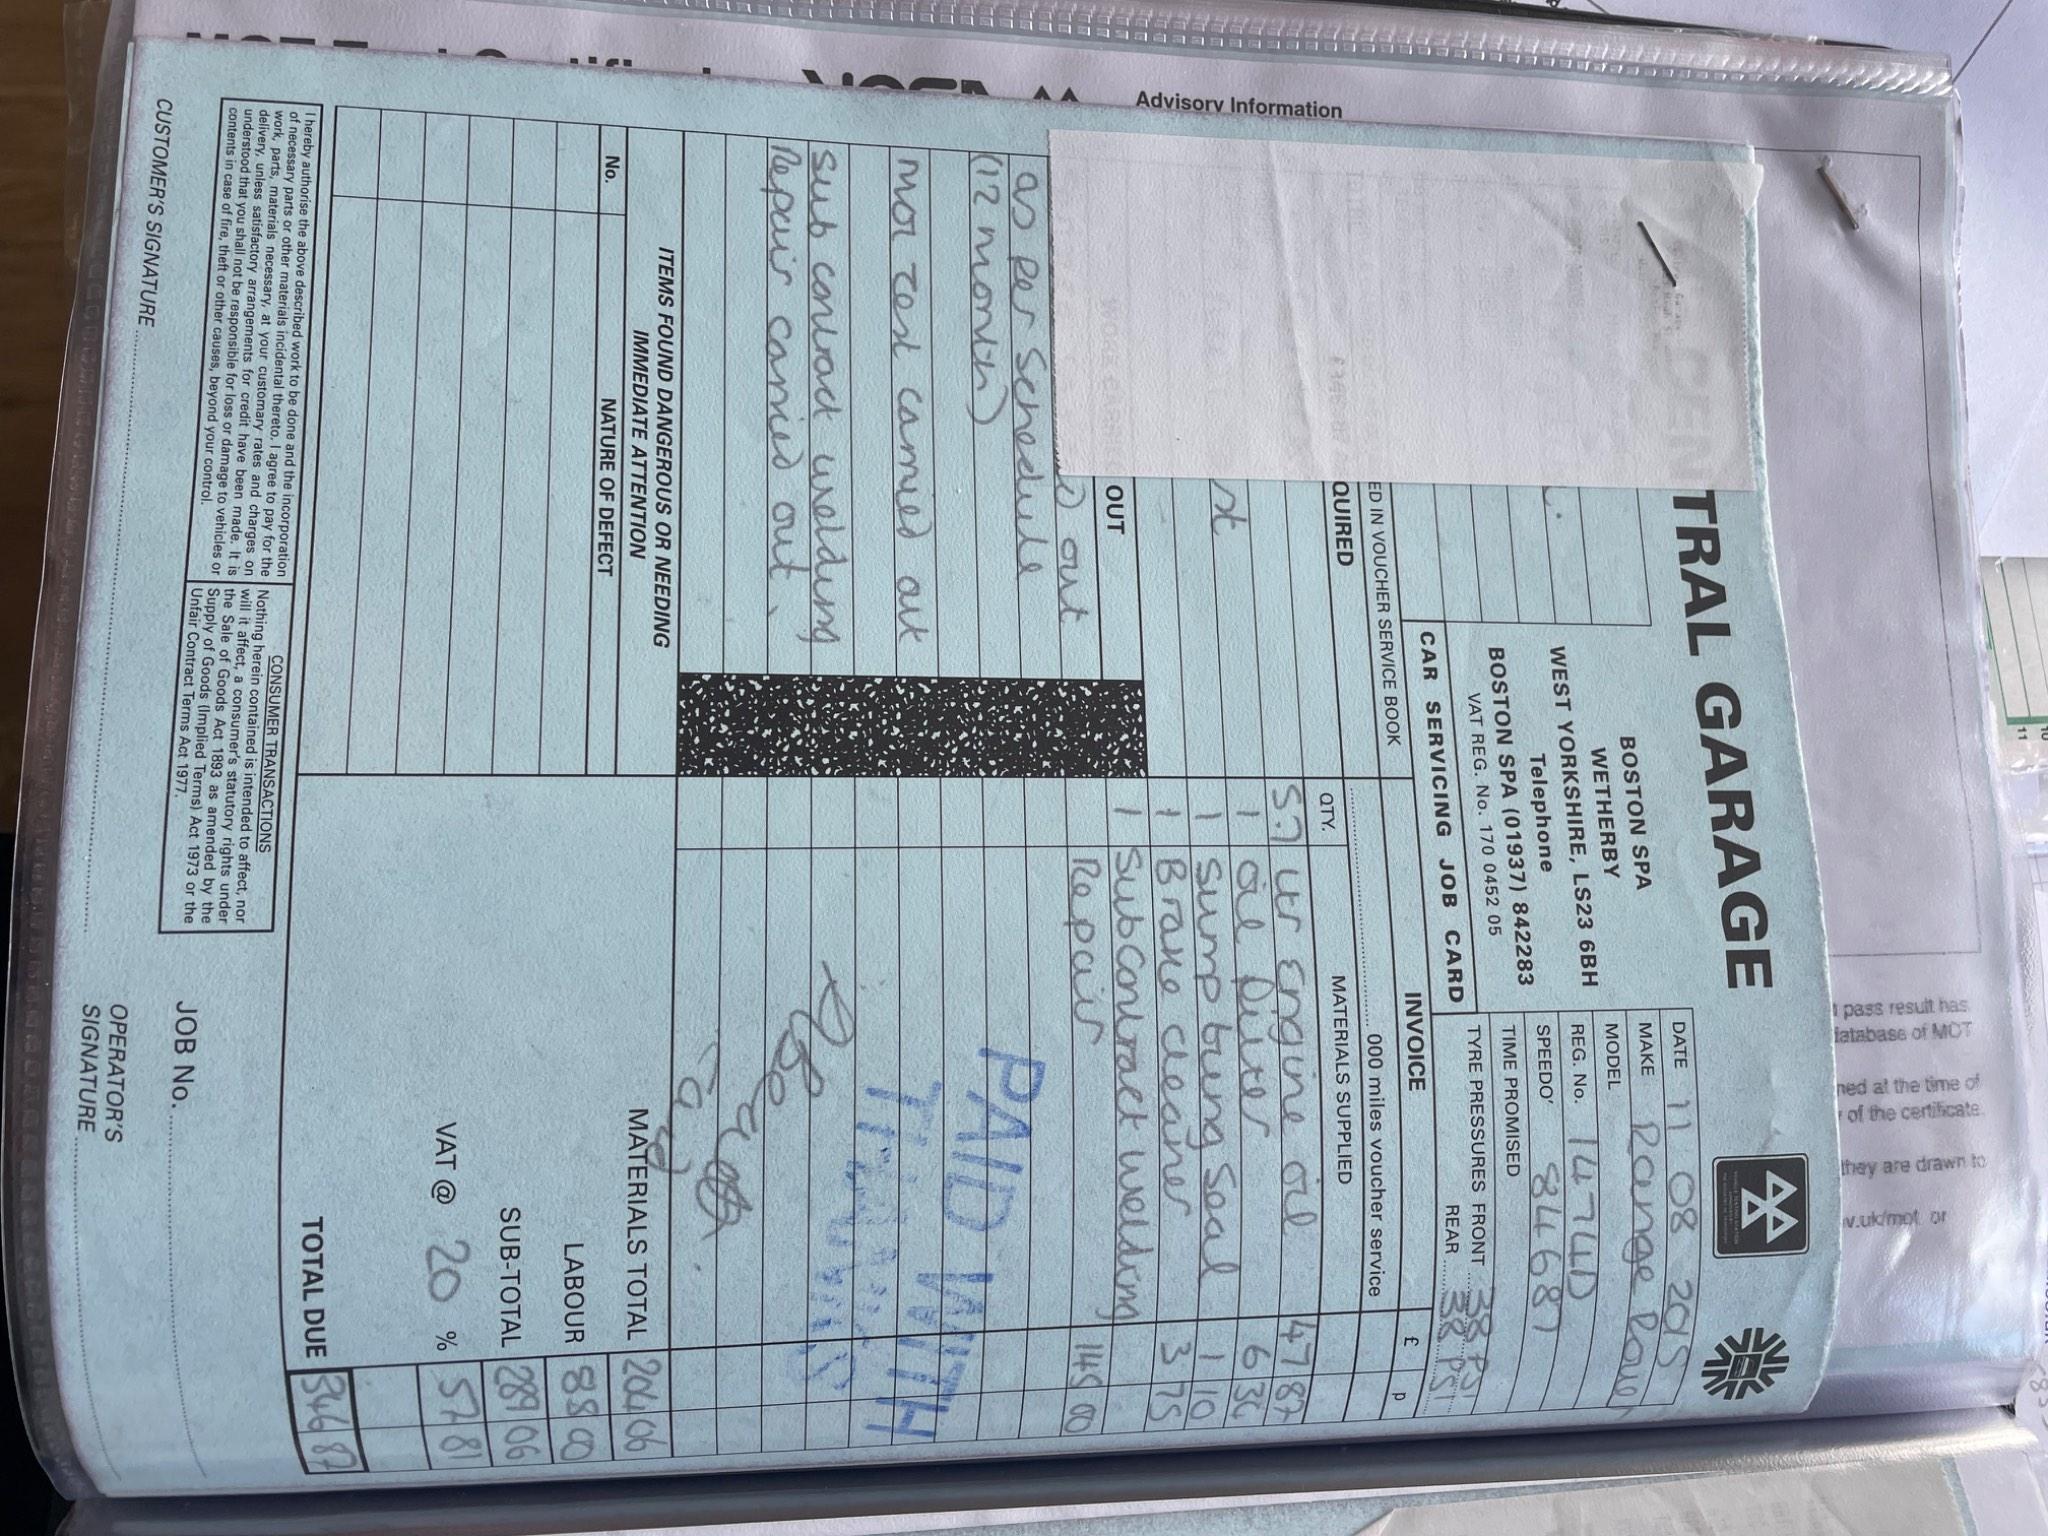 Advisory Information
TRAL GARAGE
BOSTON SPA
WETHERBY
WEST YORKSHIRE, LS23 6BH
Telephone
BOSTON SPA (01937) 842283
VAT REG. No. 170 0452 05
CAR SERVICING JOB CARD
DATE 11 08 2015
MAKE Range Rover
MODEL
REG. No. 1474D
SPEEDO' 84687
TIME PROMISED
TYRE PRESSURES FRONT 38 PSI
REAR 38 PSI
ED IN VOUCHER SERVICE BOOK
INVOICE £ p
000 miles voucher service
QUIRED
QTY. MATERIALS SUPPLIED
5.7 Ltr Engine oil 47 87
1 oil filter 6 34
st
1 Sump bung Seal 1 10
1 Brake cleaner 3 75
OUT
1 Subcontract welding
Repair 145 00
out
as per Schedule
(12 month)
MOT Test carried out
Sub contract welding
Repair carried out.
PAID WITH
THANKS
ITEMS FOUND DANGEROUS OR NEEDING
IMMEDIATE ATTENTION
No. NATURE OF DEFECT
MATERIALS TOTAL 204 06
LABOUR 85 00
SUB-TOTAL 289 06
VAT @ 20 % 57 81
TOTAL DUE 346 87
I hereby authorise the above described work to be done and the incorporation
of necessary parts or other materials incidental thereto. I agree to pay for the
work, parts, materials necessary, at your customary rates and charges on
delivery, unless satisfactory arrangements for credit have been made. It is
understood that you shall not be responsible for loss or damage to vehicles or
contents in case of fire, theft or other causes, beyond your control.
CONSUMER TRANSACTIONS
Nothing herein contained is intended to affect, nor
will it affect, a consumer's statutory rights under
the Sale of Goods Act 1893 as amended by the
Supply of Goods (Implied Terms) Act 1973 or the
Unfair Contract Terms Act 1977.
CUSTOMER'S SIGNATURE
JOB No.
OPERATOR'S
SIGNATURE
pass result has
database of MOT
ned at the time of
of the certificate.
they are drawn to
v.uk/mot or
10
11